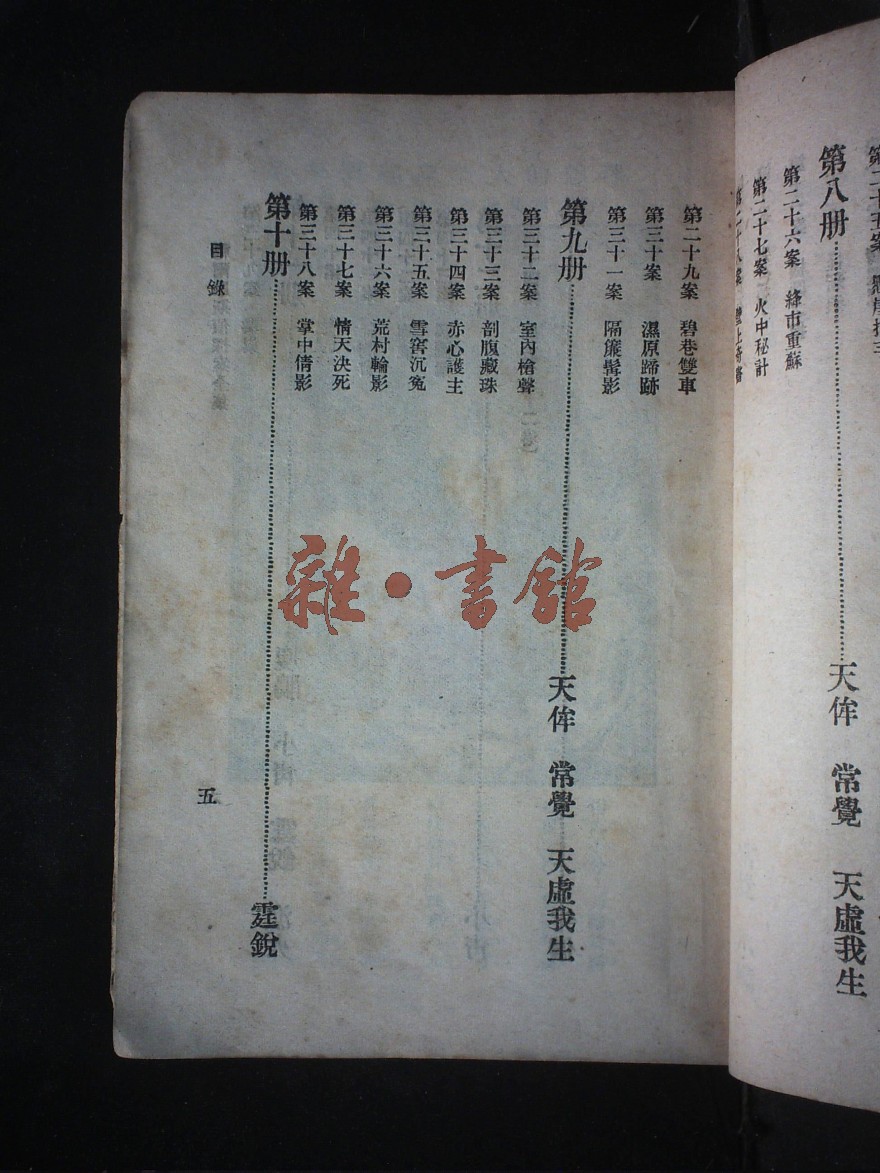 第八册……天侔 常覺 天虛我生
第二十六案 絳市重蘇
第二十七案 火中秘計
第二十九案 碧巷雙車
第三十案 濕原蹄跡
第三十一案 隔簾髯影
第九册……天侔 常覺 天虛我生
第三十二案 室內槍聲
第三十三案 剖腹藏珠
第三十四案 赤心護主
第三十五案 雪窖沉冤
第三十六案 荒村輪影
第三十七案 情天決死
第三十八案 掌中倩影
第十册……霆銳
目錄
五
雜·書館